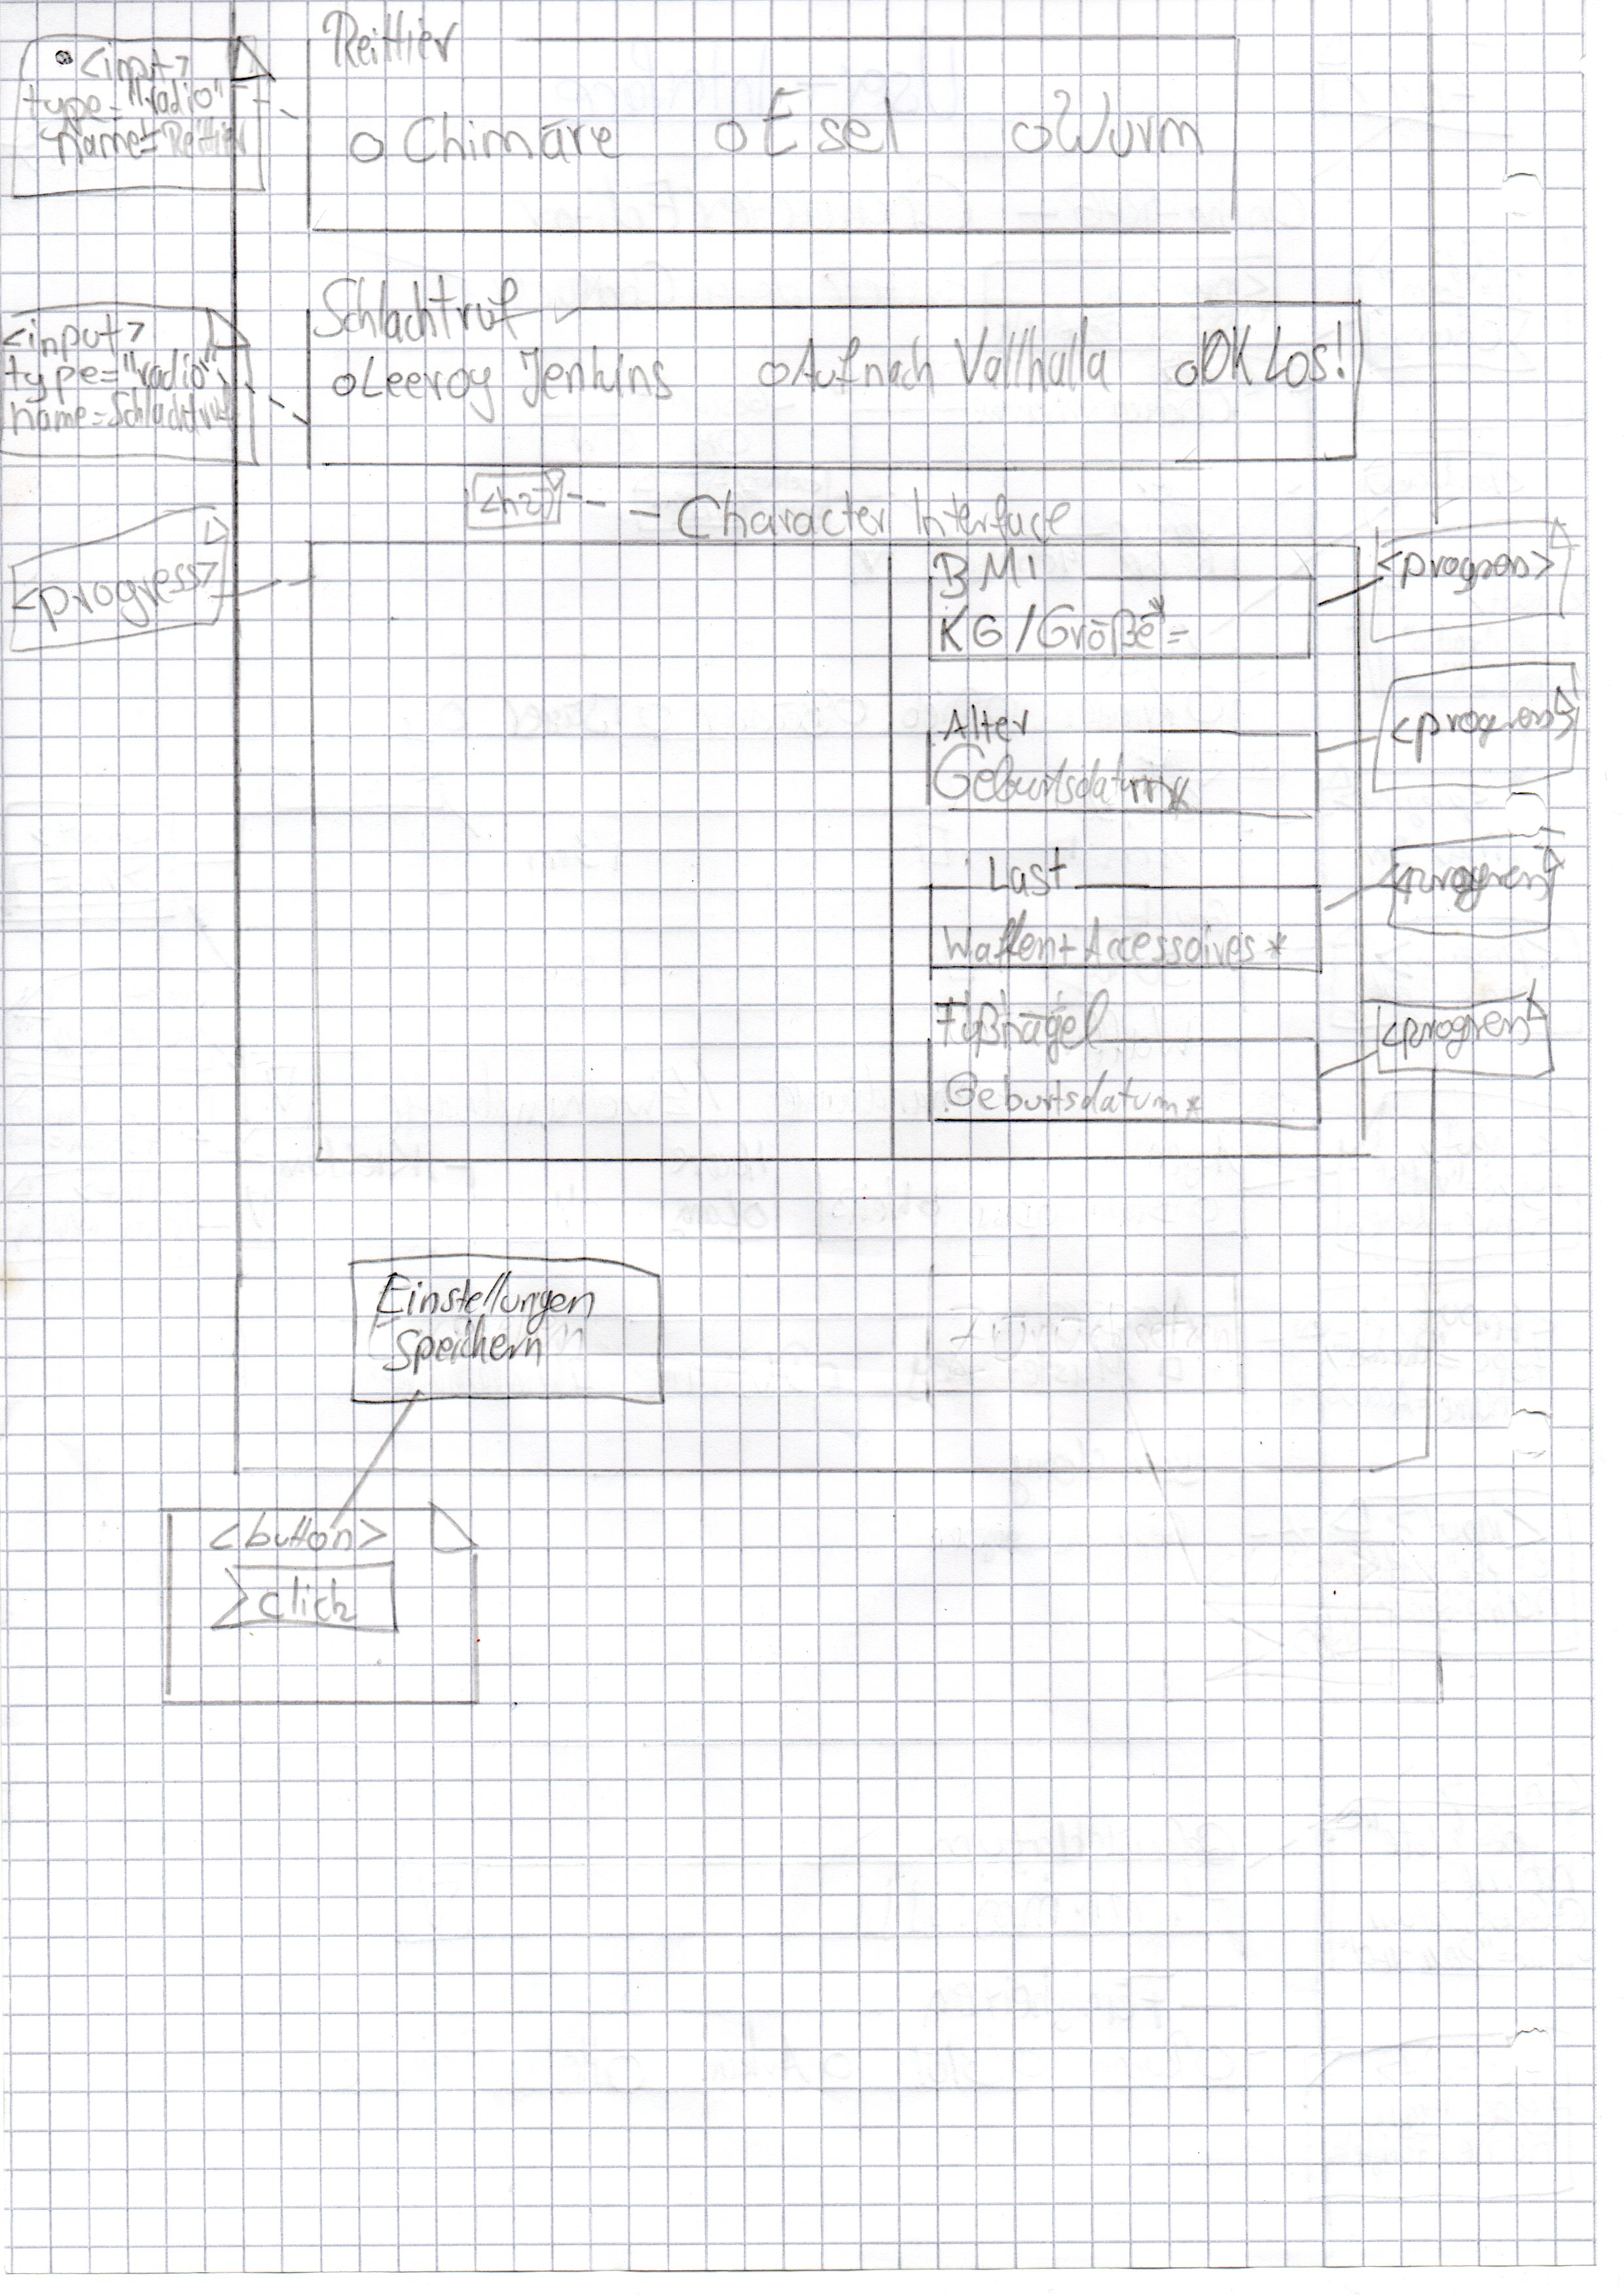 Reittier
<input>
type="radio"
name=Reittier
o Chimäre o Esel o Wurm
Schlachtruf
<input>
type="radio"
name=Schlachtruf
o Leeroy Jenkins o Auf nach Vallhalla o OK Los!
<h2> Character Interface
<progress>
BMI
KG/Größe*=
<progress>
Alter
Geburtsdatum*
<progress>
Last
Waffen+Accessoires*
<progress>
Fußnägel
Geburtsdatum*
<progress>
Einstellungen
Speichern
<button>
click